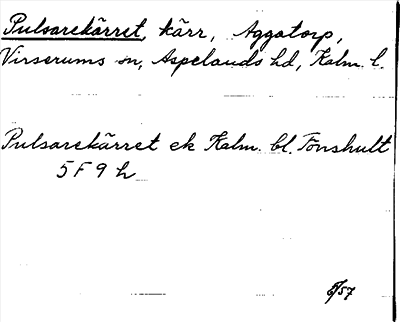 Pulsarekärret, kärr, Aggatorp,
Virserums sn, Aspelands hd, Kalm. l.
Pulsarekärret ek Kalm. bl. Fönshult
5 F 9 h
57